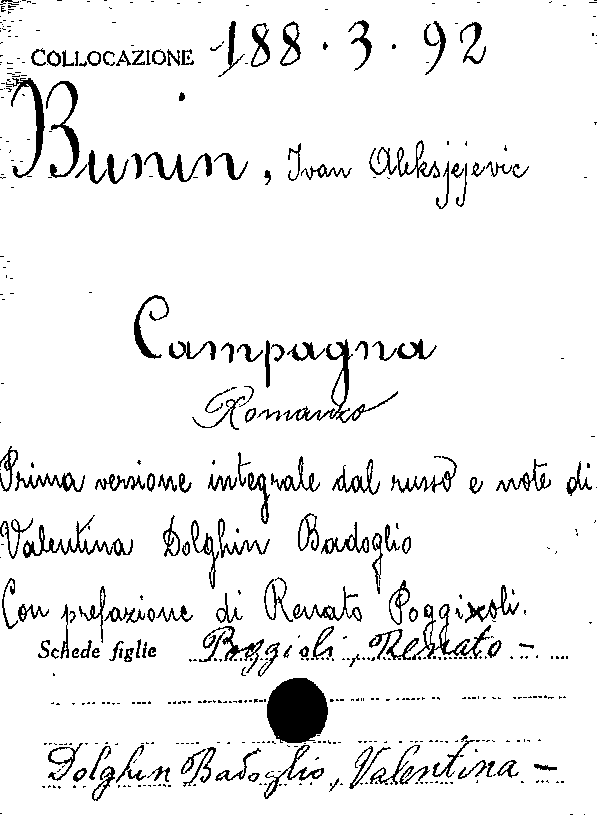 COLLOCAZIONE 188.3.92
Bunin, Ivan Aleksjejevic
Campagna
Romanzo
Prima versione integrale dal russo e note di
Valentina Dolghin Badoglio
Con prefazione di Renato Poggixoli.
Schede figlie Poggioli, Renato –
Dolghin Badoglio, Valentina –